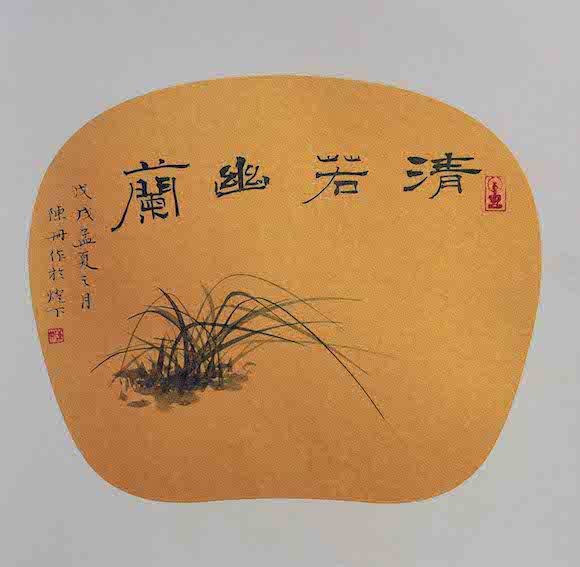 清若幽蘭
戊戌孟夏之月
陳丹作於燈下